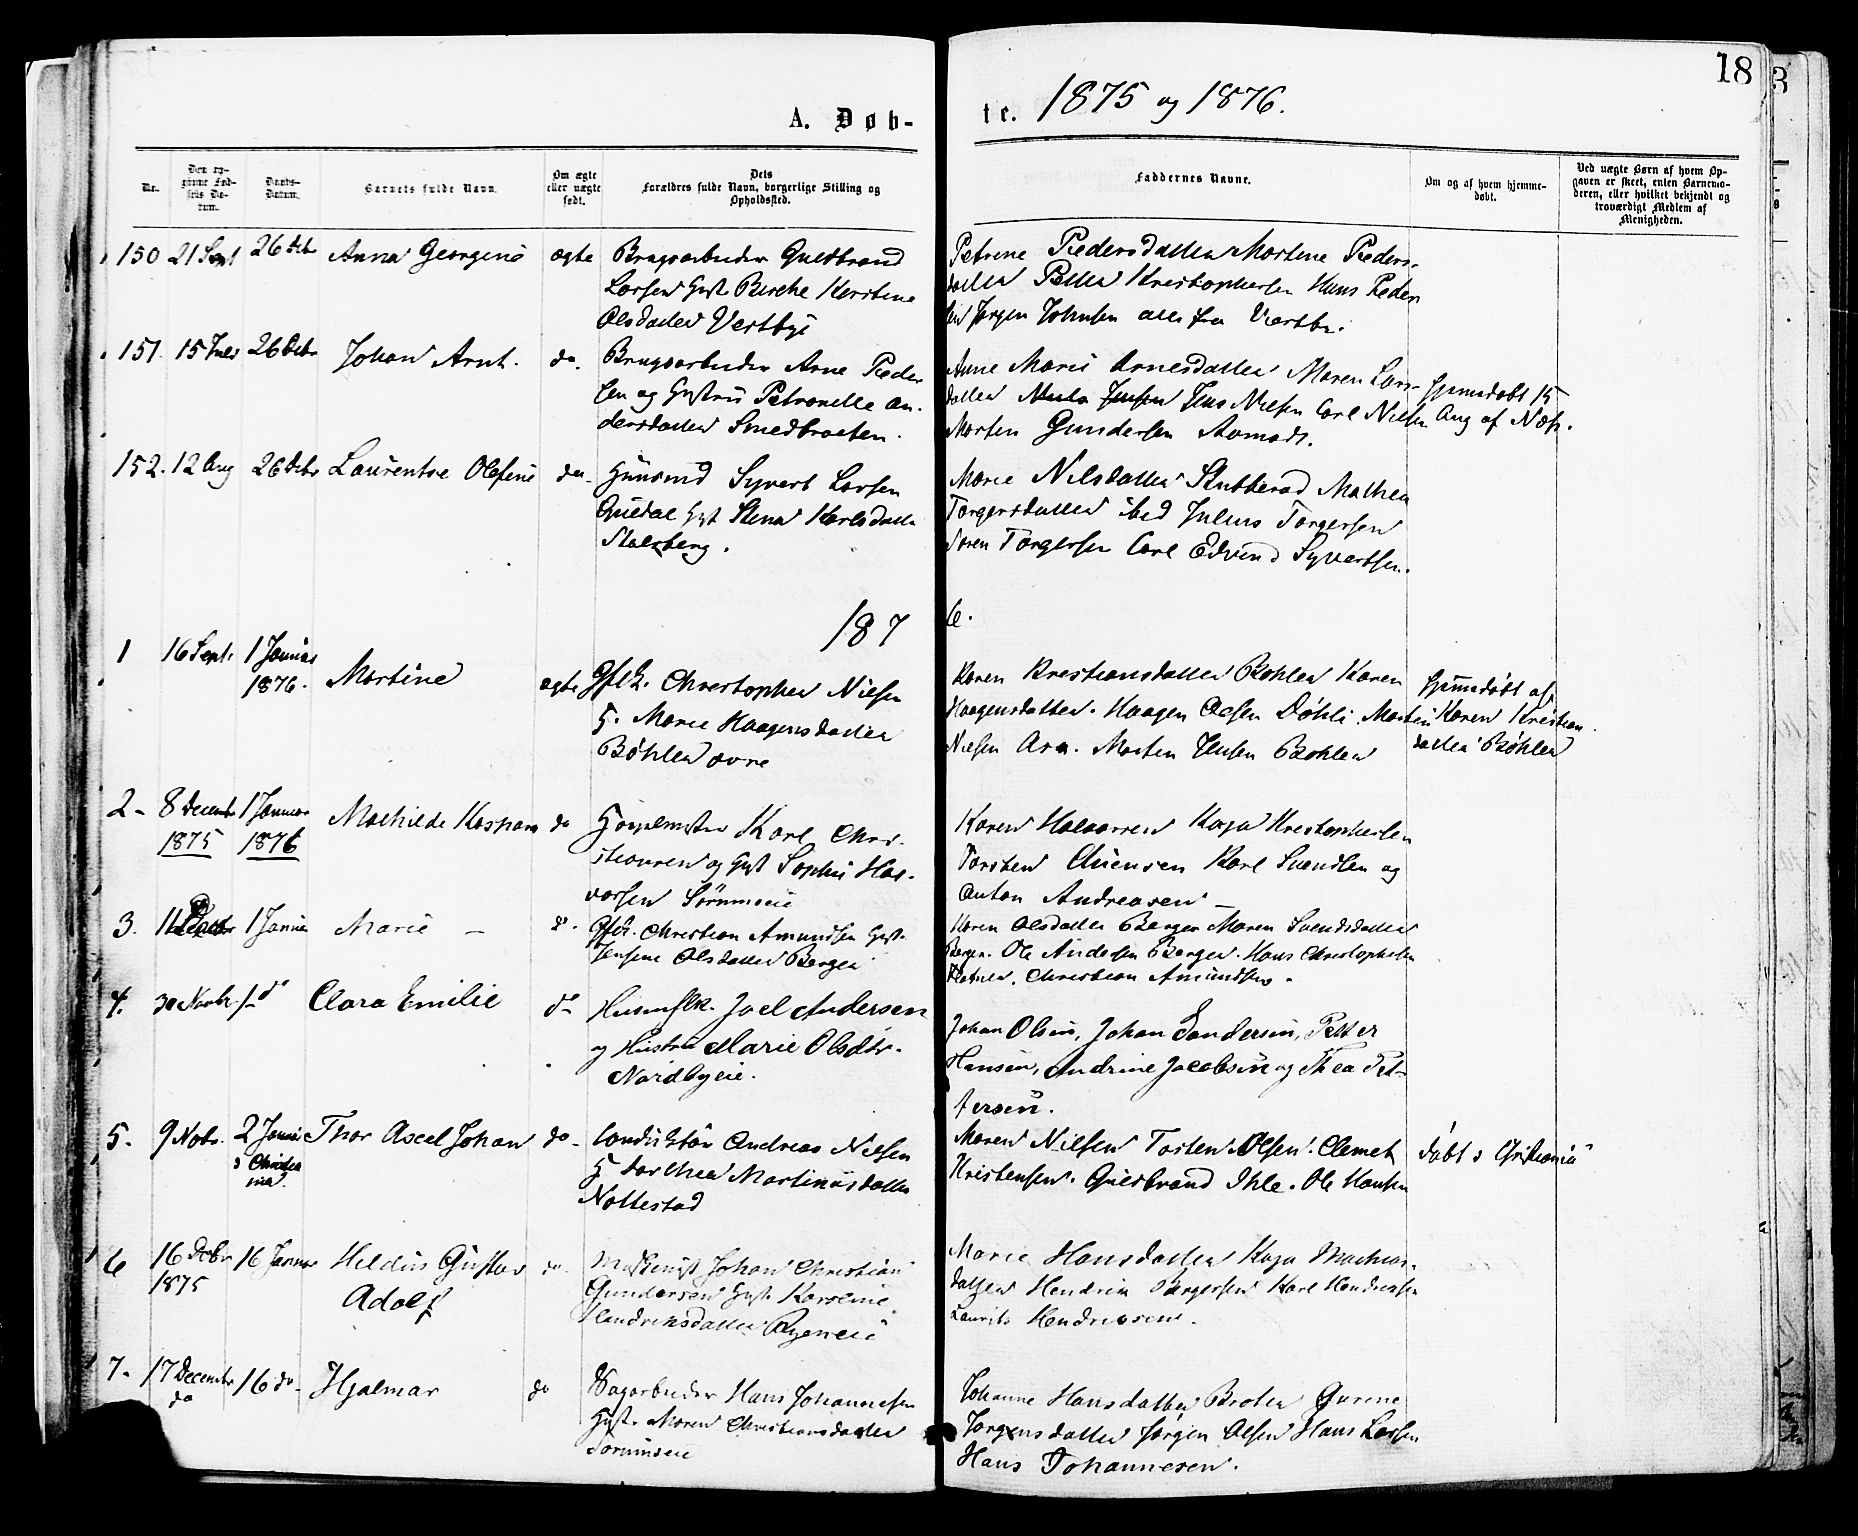 18
A. Døb-
te. 1875 og 1876.
No.
Den opgivne Fødsels Datum.
Daabs-Datum.
Barnets fulde Navn.
Om ægte eller uægte født.
Dets Forældres fulde Navn, borgerlige Stilling og Opholdssted.
Faddernes Navne.
Om og af hvem hjemmedøbt.
Ved uægte Børn af hvem Opgaven er skeet, enten Barnemoderen, eller hvilket bekjendt og troværdigt Medlem af Menigheden.
150 21 Sept 26 Debr Anna Georgine ægte
Brugsarbeider Guldbrand
Larsen Hust Birthe Kirstine
Olsdatter Vestbye
Petrine Pedersdatter Martene Peders-
datter Petter Kristophersen Hans Peder
sen Jørgen Johnsen alle fra Vestbr.
151. 15 Juli 26 Debr Johan Arnt. do.
Brugsarbeider Arne Peder
sen og Hustru Petronelle An-
dersdatter Smedbraaten.
Anne Marie Arnesdatter Maren Lars-
datter Jens Nilsen Carl Nilsen
Morten Gundersen Aamodt.
hjemmedøbt 15
Aug af
152. 12 Aug 26 Debr Laurentse Olefine do.
Huusmd Syvert Larsen
Hust Stina Karlsdatter
Stalsberg.
Marie Nilsdatter Stubberud Mathea
Torgersdatter ibid Julius Torgersen
Søren Torgersen Carl Edvind Syvertsen.
187
6.
1 16 Sept. 1 Januar
1876. Martine ægte
Christopher Nilsen
H. Marie Haagensdatter
Bøhler øvre
Karen Kristiansdatter Bøhler Karen
Haagensdatter. Haagen Olsen Døhli. Martin
Nilsen Morten Jensen Bøhler
hjemmedøbt af
Karen Kristian
datter Bøhler
2 - 8 Decembr 1 Januar
1875 1876 Mathilde Kaspara do
Karl Chri-
stiansen og Hust Sophie Hal-
vorsen Sørumseie
Karen Halvorsen Kaja Kristophersen
Torsten Karl Svendsen og
Anton Andreasen -
3. 1 Januar Marie - do.
Christian Amundsen Hust.
Jensine Olsdatter Berger
Karen Olsdatter Berger Maren Svendsdatter
Berger. Ole Andersen Berger. Hans Christophersen
Christian Amundsen.
4. 30 Novbr 1 do Clara Emilie do
Huusmfk. Joel Andersen
og Hustru Marie Olsdtr.
Nordbyeie.
Johan Olsen, Johan Gundersen, Petter
Hansen, Andrine Jacobsen og Thea Pet-
tersen.
5. 9 Nobr. 2 Januar
i Christia
nia. Thor Axel Johan do -
Conduktør Andreas Nilsen
H Dorthea Martinusdatter
Nottestad
Maren Nilsen Torsten Olsen. Clemet
Kristensen. Guldbrand Ihle. Ole Hansen
Døbt i Christiania
6 16 Debr 16 Januar
1875 Hildus Gustav
Adolf do
Maskinist Johan Christian
Gundersen Hust. Karoline
Hendriksdatter Ryeneie
Marie Hansdatter Kaja Mathias-
datter Hendrik Børgersen Karl Hendriksen
Laurits Hendriksen.
7. 17 Decembr
do 16 do Hjalmar do
Sagarbeider Hans Johannesen
Hust. Maren Christiansdatter
Sørumseie
Johanne Hansdatter Braten Gurine
Jørgensdatter Jørgen Olsen Hans Larsen
Hans Johannesen.